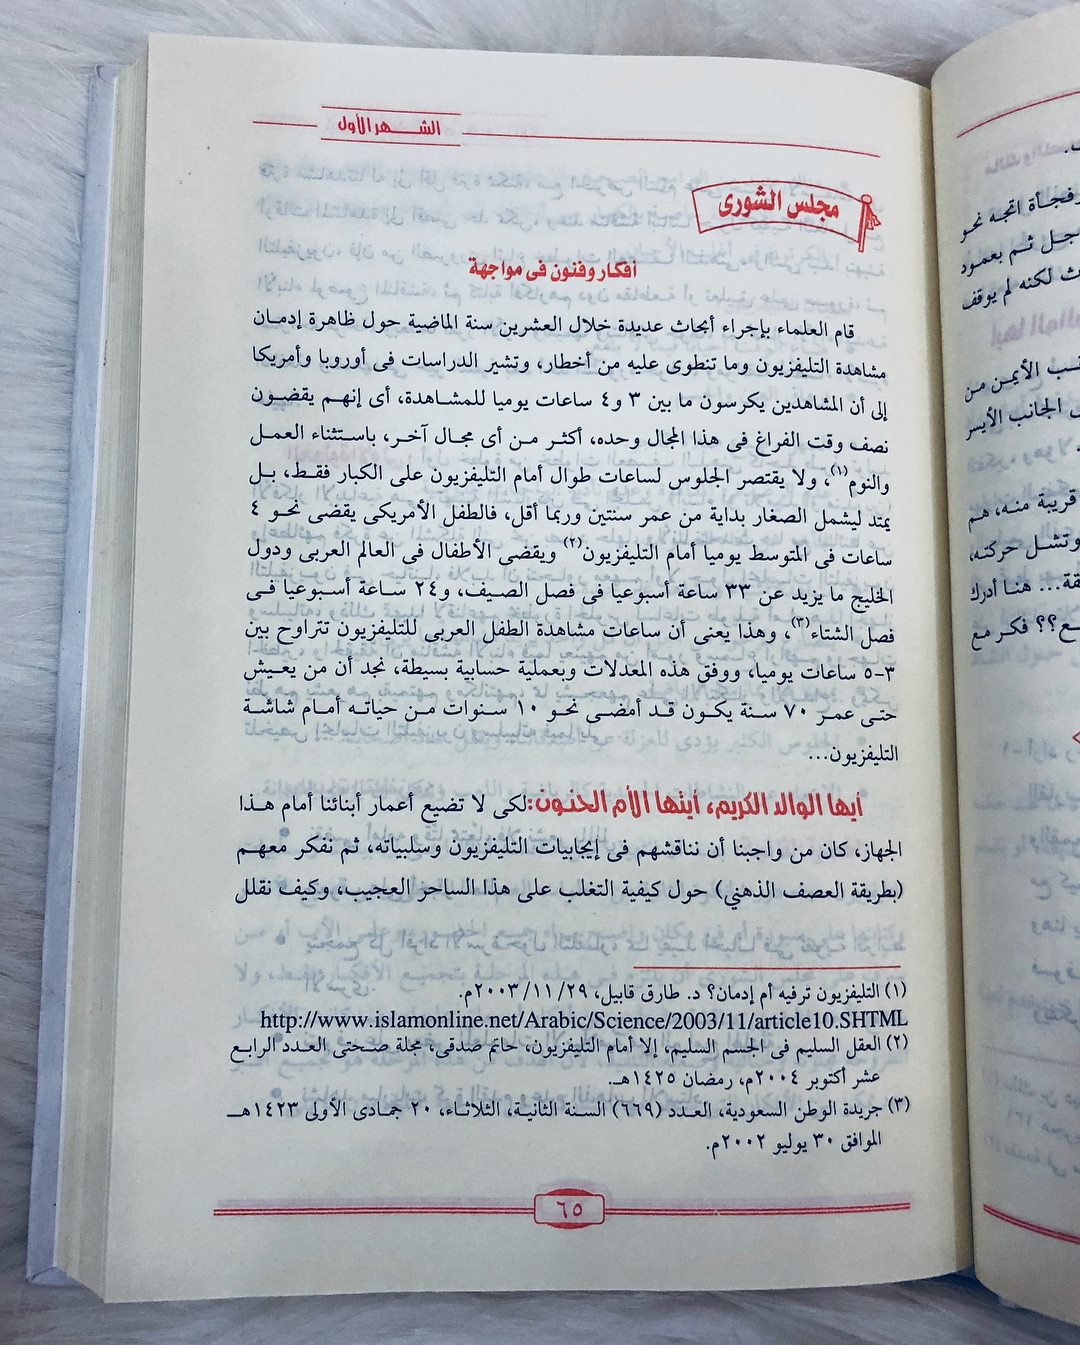 الشهر الأول
مجلس الشورى
أفكار وفنون فى مواجهة
قام العلماء بإجراء أبحاث عديدة خلال العشرين سنة الماضية حول ظاهرة إدمان
مشاهدة التليفزيون وما تنطوى عليه من أخطار، وتشير الدراسات فى أوروبا وأمريكا
إلى أن المشاهدين يكرسون ما بين ٣ و٤ ساعات يوميا للمشاهدة، أى إنهم يقضون
نصف وقت الفراغ فى هذا المجال وحده، أكثر من أى مجال آخر، باستثناء العمل
والنوم(١)، ولا يقتصر الجلوس لساعات طوال أمام التليفزيون على الكبار فقط، بل
يمتد ليشمل الصغار بداية من عمر سنتين وربما أقل، فالطفل الأمريكى يقضى نحو ٤
ساعات فى المتوسط يوميا أمام التليفزيون(٢) ويقضى الأطفال فى العالم العربى ودول
الخليج ما يزيد عن ٣٣ ساعة أسبوعيا فى فصل الصيف، و٢٤ ساعة أسبوعيا فى
فصل الشتاء(٣)، وهذا يعنى أن ساعات مشاهدة الطفل العربى للتليفزيون تتراوح بين
٣-٥ ساعات يوميا، ووفق هذه المعدلات وبعملية حسابية بسيطة، نجد أن من يعيش
حتى عمر ٧٠ سنة يكون قد أمضى نحو ١٠ سنوات من حياته أمام شاشة
التليفزيون...
أيها الوالد الكريم، أيتها الأم الحنون: لكى لا تضيع أعمار أبنائنا أمام هذا
الجهاز، كان من واجبنا أن نناقشهم فى إيجابيات التليفزيون وسلبياته، ثم نفكر معهم
(بطريقة العصف الذهني) حول كيفية التغلب على هذا الساحر العجيب، وكيف نقلل
(١) التليفزيون ترفيه أم إدمان؟ د. طارق قابيل، ٢٩/ ١١/ ٢٠٠٣م.
http://www.islamonline.net/Arabic/Science/2003/11/article10.SHTML
(٢) العقل السليم فى الجسم السليم، إلا أمام التليفزيون، حاتم صدقى، مجلة صحتى العدد الرابع
عشر أكتوبر ٢٠٠٤م، رمضان ١٤٢٥هـ.
(٣) جريدة الوطن السعودية، العدد (٦٦٩) السنة الثانية، الثلاثاء، ٢٠ جمادى الأولى ١٤٢٣هـ
الموافق ٣٠ يوليو ٢٠٠٢م.
٦٥
رفجأة اتجه نحو
جل ثم بعمود
ث لكنه لم يوقف
الأيمن من
الجانب الأيسر
قريبة منه، هم
وتشل حركته،
قة... هنا أدرك
ع؟؟ فكر مع